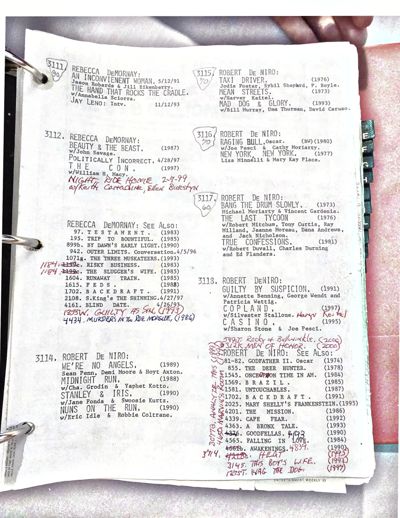 3111.
90
REBECCA DeMORNAY:
AN INCONVIENENT WOMAN, 5/12/91
Jason Robards & Jill Eikenberry.
THE HAND THAT ROCKS THE CRADLE.
w/Annabella Sciorra.
JAY LENO: Intv. 11/12/93
3112. REBECCA DeMORNAY:
BEAUTY & THE BEAST. (1987)
w/John Savage.
POLITICALLY INCORRECT. 4/28/97
THE CON. (1997)
w/William H. Macy.
NIGHT RIDE HOME 2-7-99
w/Keith Carradine Ellen Burstyn
REBECCA DeMORNAY: SEE Also:
97. TESTAMENT. (1983)
195. TRIP TO BOUNTIFUL. (1985)
899b. BY DAWN'S EARLY LIGHT. (1990)
OUTER LIMITS. Conversation. 4/5/96
1071a. THE THREE MUSKETEERS. (1993)
RISKY BUSINESS. (1983)
THE SLUGGER'S WIFE. (1985)
1604. RUNAWAY TRAIN. (1985)
1615. FEDS. (1988)
1702. BACKDRAFT. (1991)
2108. S.King's THE SHINNING. 4/27/97
4161. BLIND DATE. 4/26/95
GUILTY AS SIN (1993)
4434. MURDERS in the RUE MORGUE, (1986)
3114. ROBERT De NIRO:
WE'RE NO ANGELS. (1989)
Sean Penn, Demi Moore & Hoyt Axton.
MIDNIGHT RUN. (1988)
w/Cha. Grodin & Yaphet Kotto.
STANLEY & IRIS. (1990)
w/Jane Fonda & Swoosie Kurtz.
NUNS ON THE RUN. (1990)
w/Eric Idle & Robbie Coltrane.
3115.
90
ROBERT De NIRO:
TAXI DRIVER. (1976)
Jodie Foster, Cybil Shepard, P. Boyle.
MEAN STREETS. (1973)
w/Harvey Keitel.
MAD DOG & GLORY. (1993)
w/Bill Murray, Uma Thurman, David Caruso.
3116
90
ROBERT De NIRO:
RAGING BULL. Oscar. (BW)(1980)
w/Joe Pesci & Cathy Moriarty.
NEW YORK, NEW YORK. (1977)
Liza Minnelli & Mary Kay Place.
3117.
ROBERT De NIRO:
BANG THE DRUM SLOWLY. (1973)
Michael Moriarty & Vincent Gardenia.
THE LAST TYCOON (1976)
w/Robert Mitchum, Tony Curtis, Ray
Milland, Jeanne Moreau, Dana Andrews,
and Jack Nicholson.
TRUE CONFESSIONS. (1981)
w/Robert Duvall, Charles Durning
and Ed Flanders.
3118. ROBERT DeNIRO:
GUILTY BY SUSPICION. (1991)
w/Annette Benning, George Wendt and
Patricia Wettig.
COPLAND. (1997)
w/Silvester Stallone.
CASINO. (1995)
w/Sharon Stone & Joe Pesci.
Rocky & Bullwinkle. (2000)
MEN OF HONOR. (2000)
ROBERT De NIRO: SEE Also:
81-82. GODFATHER II. Oscar (1974)
855. THE DEER HUNTER. (1978)
1545. ONCE UPON TIME IN AM. (1984)
1569. BRAZIL. (1985)
1581. UNTOUCHABLES. (1987)
1702. BACKDRAFT. (1991)
2025. MARY SHELLY'S FRANKENSTEIN. (1995)
4201. THE MISSION. (1986)
4339. CAPE FEAR. (1992)
4363. A BRONX TALE. (1993)
GOODFELLAS. (1990)
4565. FALLING IN LOVE. (1984)
AWAKENINGS. 4854. (1990)
3714. HEAT (1995)
3145. THIS BOY'S LIFE. (1993)
WAG THE DOG (1997)